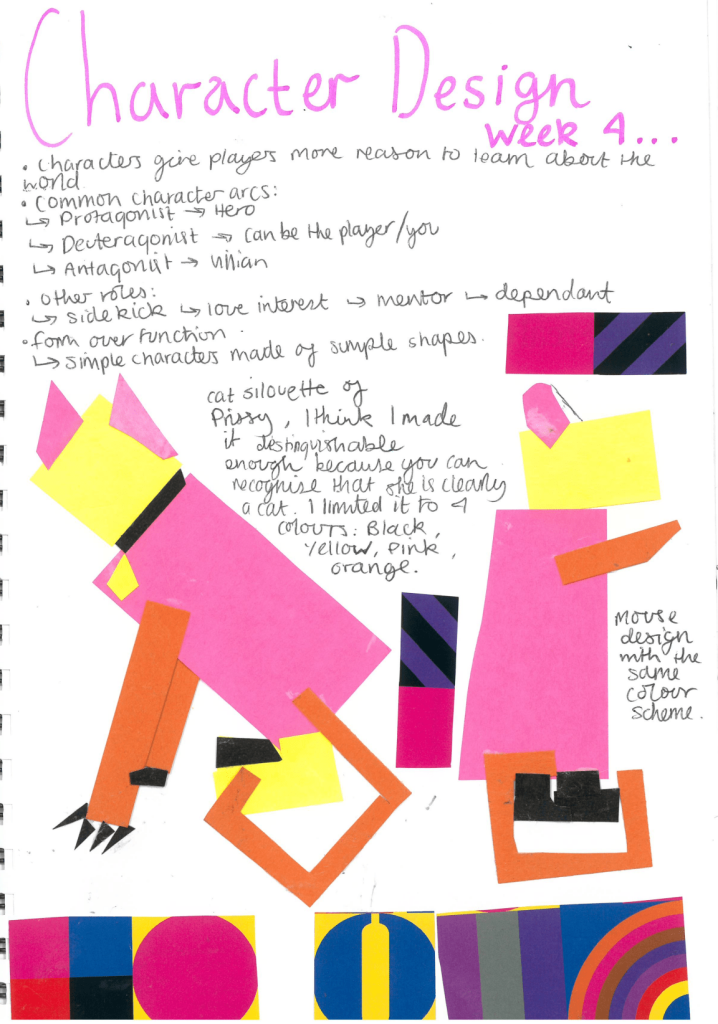 Character Design
week 4...
• Characters give players more reason to learn about the
world.
• Common character arcs:
↳ Protagonist → Hero
↳ Deuteragonist → Can be the player/you
↳ Antagonist → villian
• Other roles:
↳ sidekick ↳ love interest ↳ mentor ↳ dependant
• form over function.
↳ simple characters made of simple shapes.
cat silouette of
Prissy, I think I made
it destinquishable
enough because you can
recognise that she is clearly
a cat. I limited it to 4
colours: Black,
Yellow, Pink,
orange.
Mouse
design
with the
same
colour
scheme.